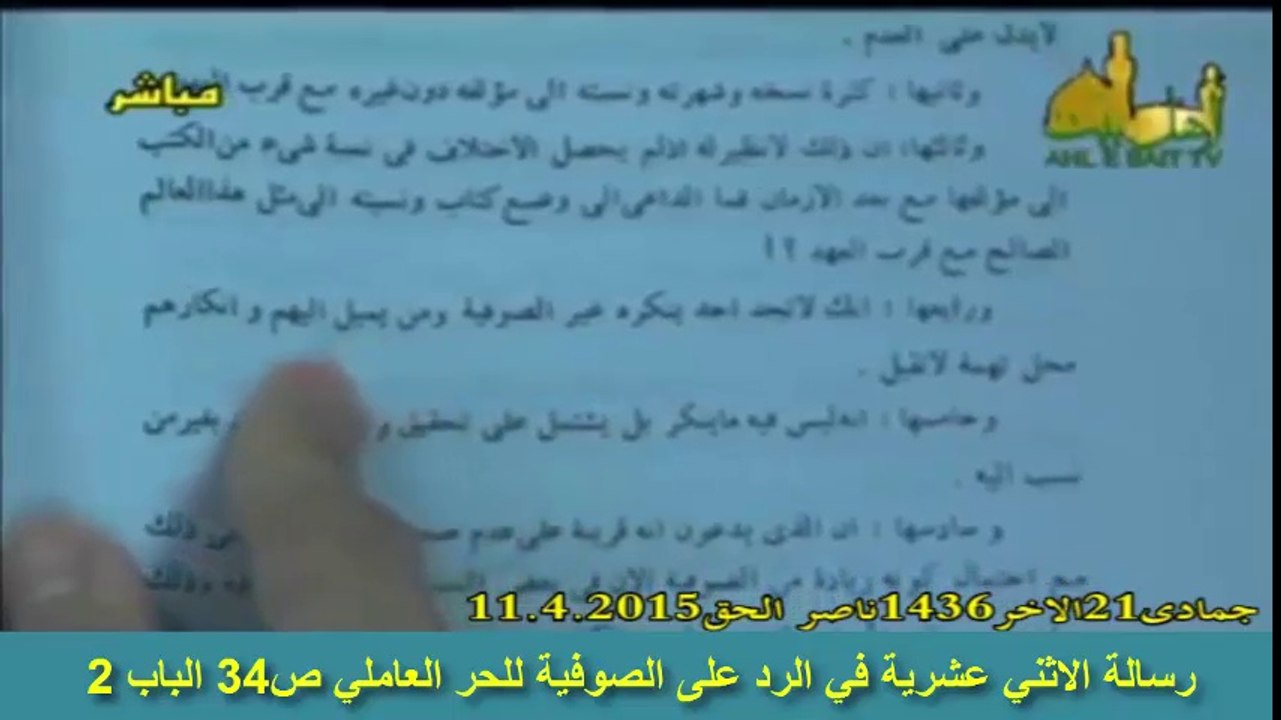 لايدل على العدم .
وثانيها : كثرة نسخه وشهرته ونسبته الى مؤلفه دون غيره مع قرب
مباشر
AHL E BAIT TV
وثالثها: ان ذلك لانظير له اذلم يحصل الاختلاف فى نسبة شىء من الكتب
الى مؤلفها مع بعد الازمان فما الداعى الى وضع كتاب ونسبته الى مثل هذا العالم
الصالح مع قرب العهد ؟!
ورابعها : انك لاتجد احد ينكره غير الصوفية ومن يميل اليهم و انكارهم
محل تهمة لاتقبل .
وخامسها : انه ليس فيه ماينكر بل يشتمل على تحقيق و بغير من
نسب اليه .
و سادسها : ان الذى يدعون انه قرينة على عدم ذلك
مع احتمال كونه زيادة من الصوفية الان فى بعض فيه وذلك
جمادى21الاخر1436ناصر الحق11.4.2015
رسالة الاثني عشرية في الرد على الصوفية للحر العاملي ص34 الباب 2